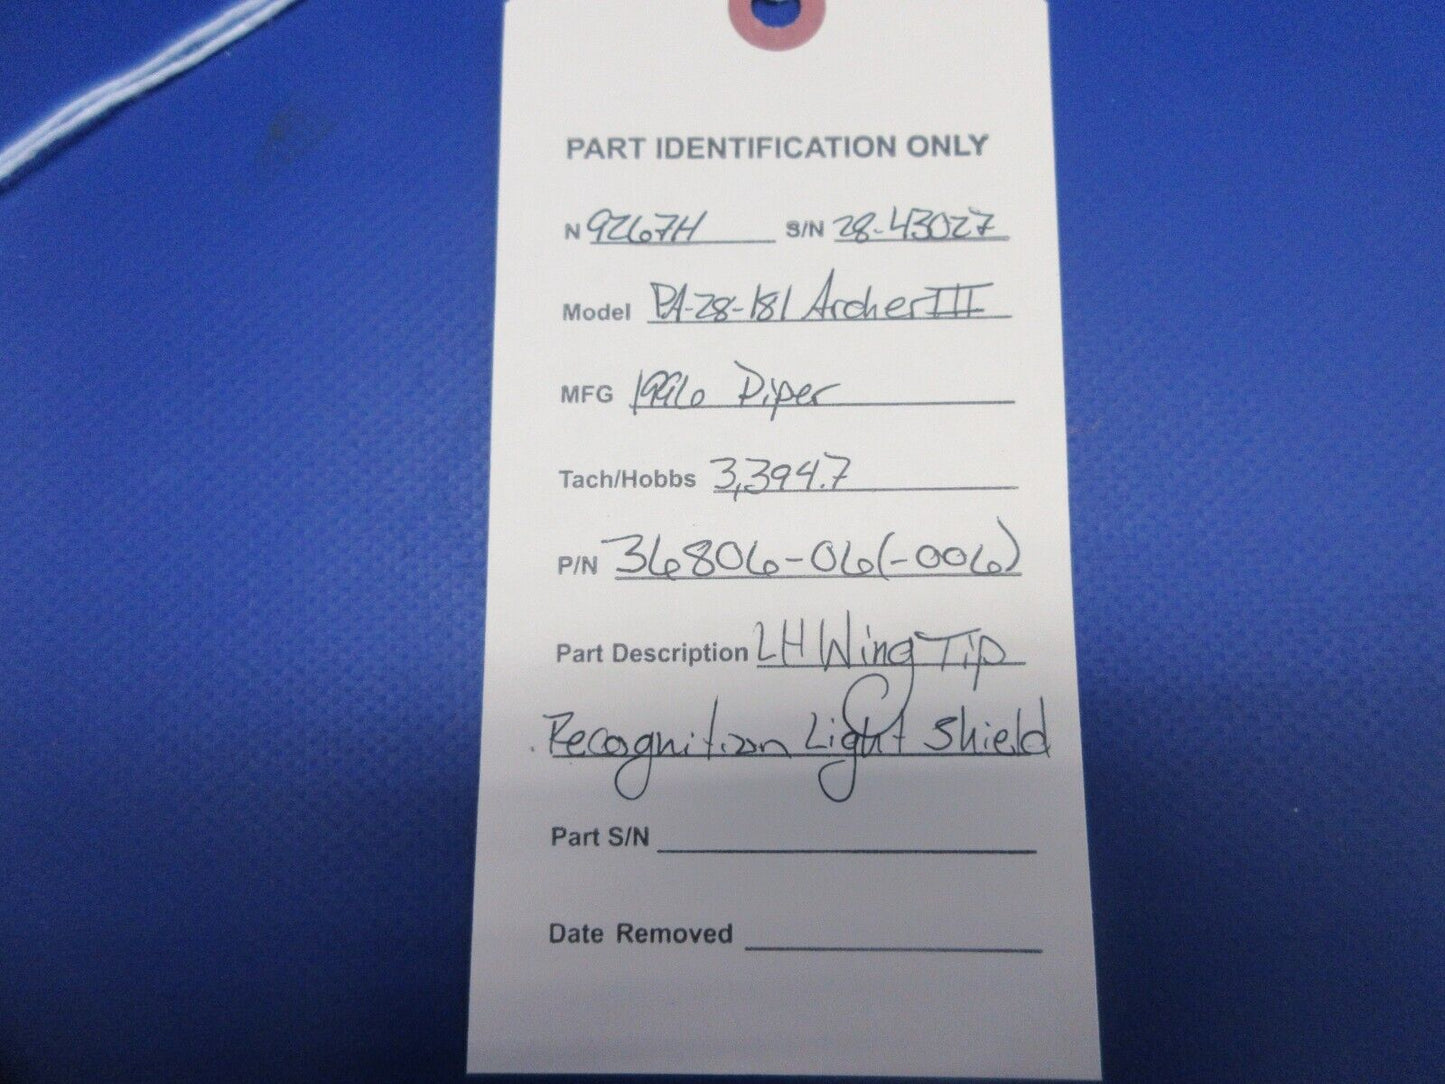 PART IDENTIFICATION ONLY
N 9267H S/N 28-43027
Model PA-28-181 Archer III
MFG 1996 Piper
Tach/Hobbs 3,394.7
P/N 36806-06(-006)
Part Description LH Wing Tip
Recognition Light Shield
Part S/N
Date Removed